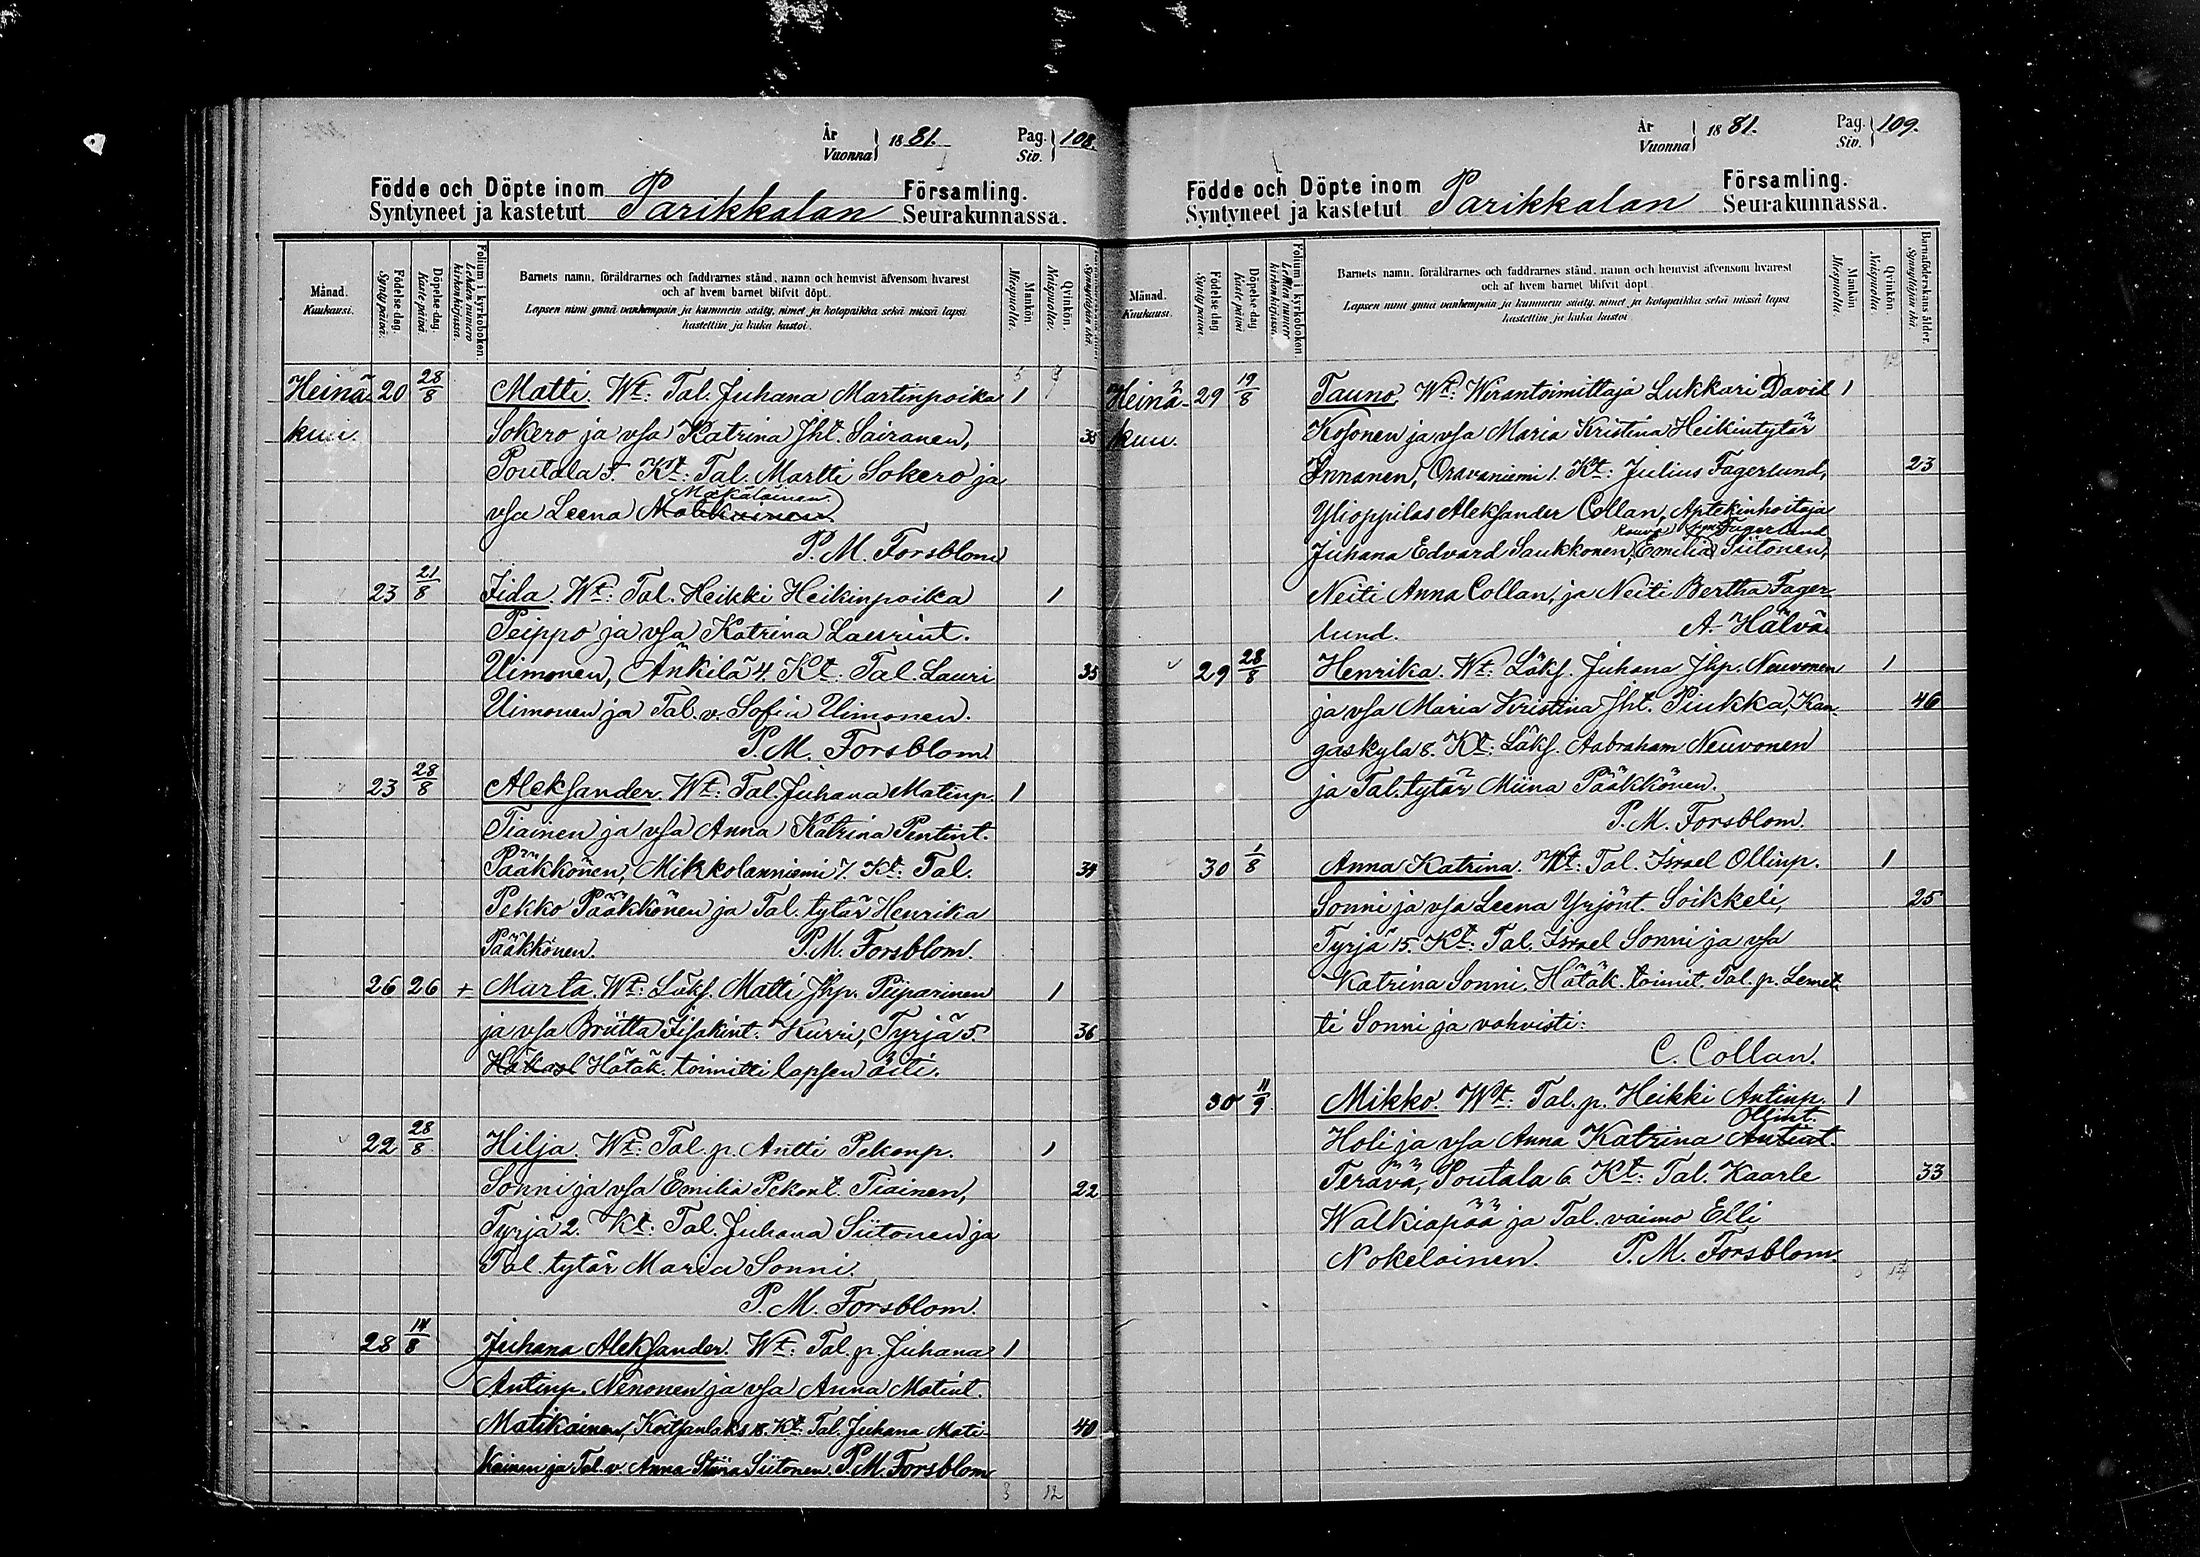 År
Vuonna } 1881. Pag.
Siv. } 108.
Födde och Döpte inom Parikkalan Församling.
Syntyneet ja kastetut Seurakunnassa.
Månad.
Kuukausi.
Födelse-dag.
Syntypäivä.
Döpelse-dag.
Kaste päivä
Folium i kyrkoboken.
Lehden numero kirkonkirjassa.
Barnets namn, föräldrarnes och faddrarnes stånd, namn och hemvist äfvensom hvarest
och af hvem barnet blifvit döpt.
Lapsen nimi ynnä vanhempain ja kummein sääty, nimet ja kotopaikka sekä missä lapsi
kastettiin ja kuka kastoi.
Mankön
Miespuolia.
Qvinkön.
Naispuolia.
Heinä- 20 28/8 Matti. Wt: Tal. Juhana Martinpoika 1
kuu. Sokero ja vsa Katrina Jht. Sairanen, 35
Poutala 5. Kt: Tal. Martti Sokero ja
Mäkäläinen
vsa Leena
P. M. Forsblom
23 21/8 Iida. Wt: Tal. Heikki Heikinpoika 1
Peippo ja vsa Katrina Laurint.
Uimonen, Änkilä 4. Kt: Tal. Lauri 35
Uimonen ja Tal. v. Sofia Uimonen.
P. M. Forsblom.
23 28/8 Aleksander. Wt: Tal. Juhana Matinp. 1
Tiainen ja vsa Anna Katrina Pentint.
Pääkkönen, Mikkolanniemi 7. Kt: Tal. 34
Pekko Pääkkönen ja Tal. tytär Henrika
Pääkkönen. P. M. Forsblom.
26 26 + Marta. Wt: Läks. Matti Jhp. Piiparinen 1
ja vsa Briitta Iisakint. Kurri, Tyrjä 5. 36
Hätäk. toimitti lapsen äiti.
22 28/8 Hilja. Wt: Tal. p. Antti Pekonp. 1
Sonni ja vsa Emilia Pekont. Tiainen, 22
Tyrjä 2. Kt: Tal. Juhana Siitonen ja
Tal. tytär Maria Sonni.
P. M. Forsblom.
28 14/8 Juhana Aleksander. Wt: Tal. p. Juhana 1
Antinp. Nenonen ja vsa Anna Matint.
Matikainen, Koitsanlaks 18. Kt: Tal. Juhana Mati- 40
kainen ja Tal. v. Anna Stiina Siitonen. P. M. Forsblom
3 12
År
Vuonna } 1881. Pag.
Siv. } 109.
Födde och Döpte inom Parikkalan Församling.
Syntyneet ja kastetut Seurakunnassa.
Månad.
Kuukausi.
Födelse-dag
Syntypäivä.
Döpelse-dag
Kaste päivä
Folium i kyrkoboken
Lehden numero kirkonkirjassa.
Barnets namn, föräldrarnes och faddrarnes stånd, namn och hemvist äfvensom hvarest
och af hvem barnet blifvit döpt.
Lapsen nimi ynnä vanhempain ja kummein sääty, nimet ja kotopaikka sekä missä lapsi
kastettiin ja kuka kastoi.
Mankön
Miespuolia.
Qvinkön
Naispuolia.
Barnaföderskans ålder.
Synnyttäjän ikä.
Heinä- 29 19/8 Tauno. Wt: Wirantoimittaja Lukkari David 1
kuu. Kosonen ja vsa Maria Kristina Heikintytär
Innanen, Oravaniemi 1. Kt: Julius Fagerlund, 23
Ylioppilas Aleksander Collan, Aptekinhoitaja
Rouva Fagerlund
Juhana Edvard Saukkonen, Emilia Siitonen,
Neiti Anna Collan, ja Neiti Bertha Fager-
lund. A. Hälvä.
29 28/8 Henrika. Wt: Läks. Juhana Jhp. Neuvonen 1
ja vsa Maria Kristina Jht. Piukka, Kan- 46
gaskylä 8. Kt: Läks. Aabraham Neuvonen
ja Tal. tytär Miina Pääkkönen.
P. M. Forsblom.
30 1/8 Anna Katrina. Wt: Tal. Israel Ollinp. 1
Sonni ja vsa Leena Yrjönt. Soikkeli, 25
Tyrjä 15. Kt: Tal. Israel Sonni ja vsa
Katrina Sonni. Hätäk. toimit. Tal. p. Lemet-
ti Sonni ja vahvisti:
C. Collan.
30 11/9 Mikko. Wt: Tal. p. Heikki Antinp. 1
Ollint.
Holi ja vsa Anna Katrina Antint.
Terävä, Poutala 6. Kt: Tal. Kaarle 33
Walkiapää ja Tal. vaimo Elli
Nokelainen. P. M. Forsblom.